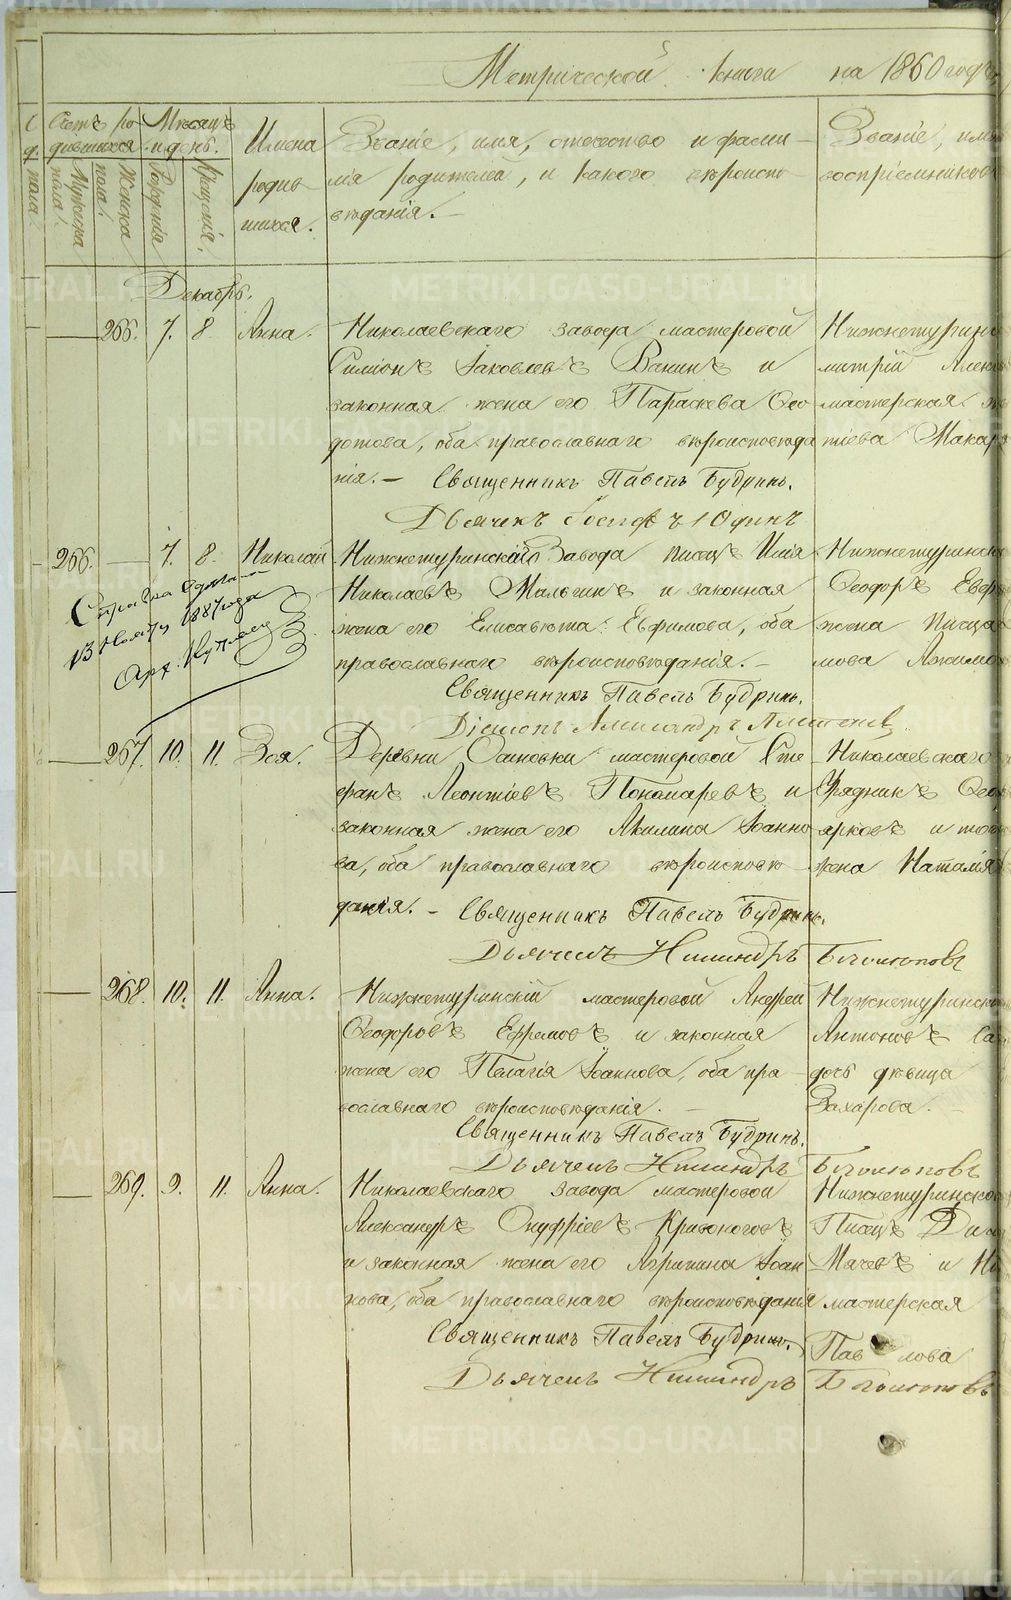 Метрической книги на 1860 годъ,
Счетъ ро-
дившихся
Мужеска пола.
Женска пола.
Мѣсяцъ и день.
Рожденія
Крещенія.
Имена родив-
шихся.
Званіе, имя, отчество и фами-
лія родителей, и какого вѣроиспо-
вѣданія.
Званіе, имя
воспріемниковъ
Декабрь.
266. 7. 8. Анна.
Николаевскаго завода мастеровой
Симіонъ Іаковлевъ Ванинъ и
законная жена его Параскева Ѳео-
дотова, оба православнаго вѣроисповѣда
нія. —
Священникъ Павелъ Будринъ.
Дьячекъ Іосифъ Юдинъ
Нижнетурин
митрій Алек
мастерская
тіева Макар
266. — 7. 8. Николай
Нижнетуринскаго Завода писецъ Илія
Николаевъ Малыгинъ и законная
жена его Елисавета Евфимова, оба
православнаго вѣроисповѣданія. —
Священникъ Павелъ Будринъ.
Діаконъ Александръ
Нижнетуринск
Ѳеодоръ Евгр
жена писца
мова
Справка
13 1887 года
267. 10. 11. Зоя.
Деревни Основки мастеровой Сте-
фанъ Леонтіевъ Пономаревъ и
законная жена его Акилина Іоанно
ва, оба православнаго вѣроисповѣ-
данія. —
Священникъ Павелъ Будринъ.
Дьячекъ
Николаевскаго
Урядникъ Ѳео
ярковъ и
жена Наталія
268. 10. 11. Анна.
Нижнетуринскій мастеровой Андрей
Ѳеодоровъ Ефремовъ и законная
жена его Пелагія Іоаннова, оба пра-
вославнаго вѣроисповѣданія. —
Священникъ Павелъ Будринъ.
Дьячекъ
Нижнетуринск
Антоновъ
дочь дѣвица
Захарова. —
269. 9. 11. Анна.
Николаевскаго завода мастеровой
Александръ Онуфріевъ Кривоноговъ
и законная жена его Агрипина Іоан-
нова, оба православнаго вѣроисповѣданія
Священникъ Павелъ Будринъ.
Дьячекъ
Нижнетуринско
Писецъ
Мячевъ и
мастерская
Павлова
METRIKI.GASO-URAL.RU